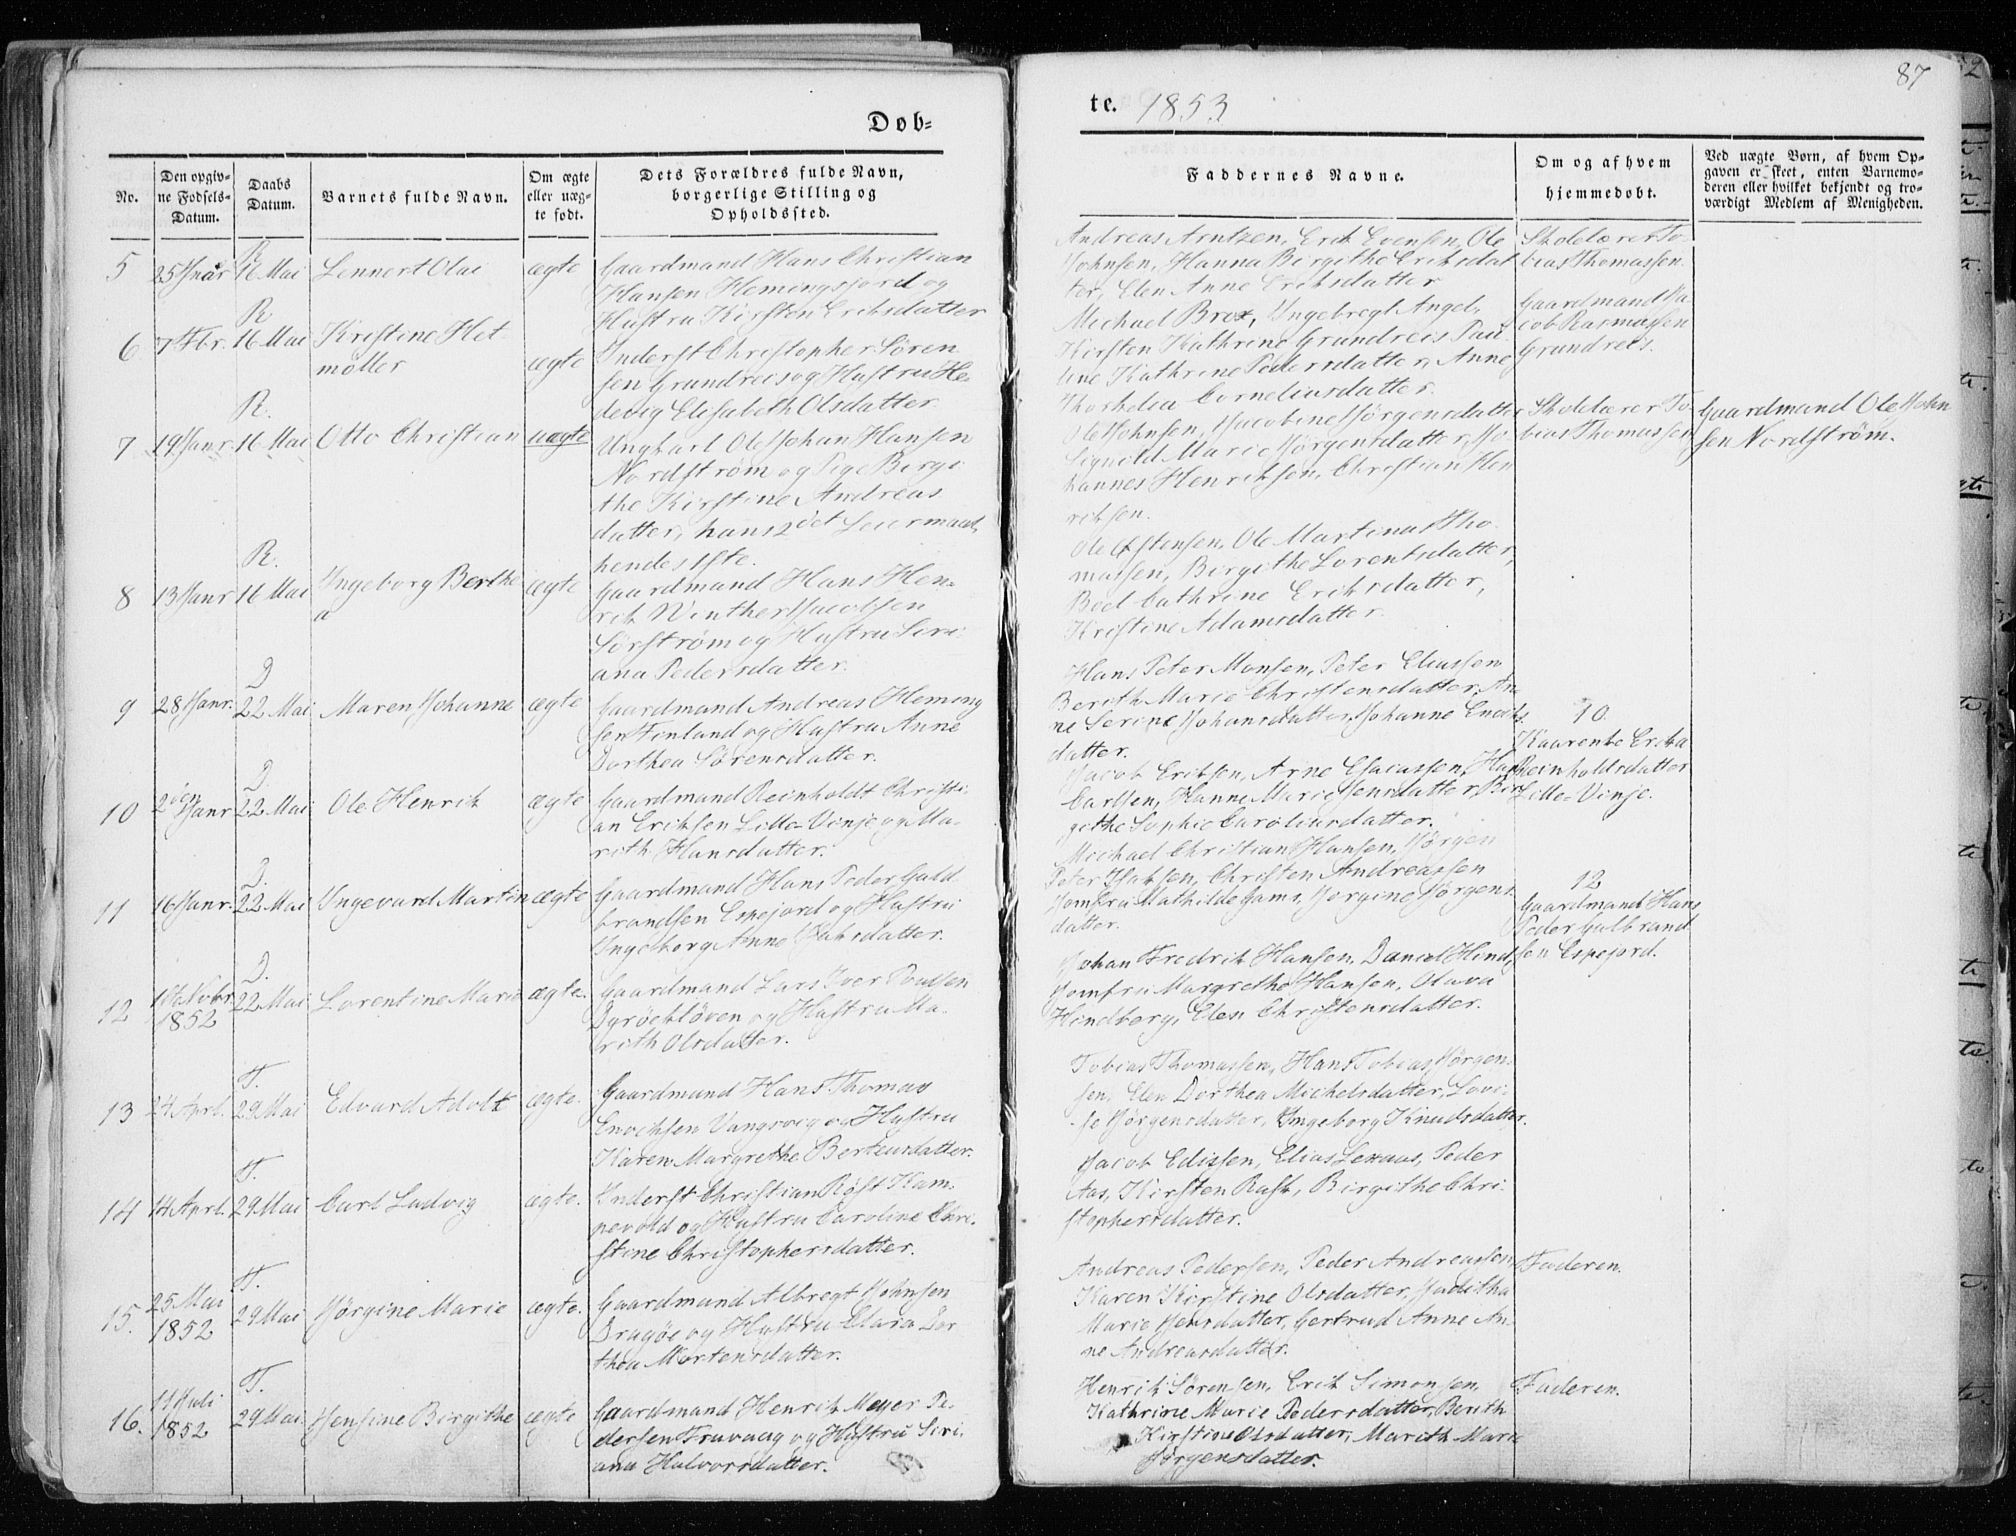 87
Døb-
te. 1853
No.
Den opgiv-
ne Fødsels-
Datum.
Daabs
Datum.
Barnets fulde Navn.
Om ægte
eller uæg-
te født.
Dets Forældres fulde Navn,
borgerlige Stilling og
Opholdssted.
Faddernes Navne.
Om og af hvem
hjemmedøbt.
Ved uægte Børn, af hvem Op-
gaven er skeet, enten Barnemo-
deren eller hvilket bekjendt og tro-
værdigt Medlem af Menigheden.
R
5 25 Jnar 16 Mai Lennert Olai ægte
Gaardmand Hans Christian
Hansen Hemingsjord og
Hustru Kirsten Eriksdatter
Andreas Arntzen, Erik Evensen, Ole
Johnsen, Hanna Birgithe Eriksdat
ter, Elen Anne Eriksdatter
Skolelærer To-
bias Thomassen.
R
6 7 Fbr. 16 Mai Kristine Het-
møller
ægte
Inderst Christopher Søren
sen Grundreis og Hustru He-
devig Elisabeth Olsdatter
Michael Brox, Ingebregt Angel,
Kirsten Kathrine Grundreis Pau
line Kathrine Pedersdatter, Anne
Thorkelia Corneliusdatter.
Gaardmand Ja-
cob Rasmussen
Grundreis.
R.
7 19 Janr 16 Mai Otto Christian uægte
Ungkarl Ole Johan Hansen
Nordstrøm og Pige Birgi
the Kirstine Andreas
datter, hans 2det Leiermaal,
hendes 1ste.
Ole Johnsen, Jacobine Jørgensdatter
Signild Marie Jørgensdatter, Jo
hannes Henriksen, Christian Hen
riksen.
Skolelærer To-
bias Thomassen
Gaardmand Ole John
sen Nordstrøm.
R.
8 13 Janr 16 Mai Ingeborg Berthe
a
ægte
Gaardmand Hans Hen-
rik Winther Jacobsen
Sørstrøm og Hustru Siri-
ana Pedersdatter.
Ole Østensen, Ole Martinus Tho
massen, Birgithe Lorentsdatter,
Boel Cathrine Eriksdatter,
Kristine Adamsdatter.
D
9 28 Janr. 22 Mai Maren Johanne ægte
Gaardmand Andreas Heming
sen Finland og Hustru Anne
Dorthea Sørensdatter.
Hans Peter Monsen, Peter Eliassen
Berith Marie Christensdatter, An
ne Serine Johansdatter, Johanne Enoks
datter.
D.
10 2den Janr 22 Mai Ole Henrik ægte
Gaardmand Reinholdt Christi-
an Eriksen Lille-Vinje og Ma-
rith Hansdatter.
Jacob Eriksen, Arne Isacassen, Hans
Carlsen, Hanne Marie Jensdatter, Bir
githe Sophie Caroliusdatter.
10
Kaarenbo Erika
Reinholdsdatter
Lille-Vinje.
D.
11 16 Janr. 22 Mai Ingevard Martin ægte
Gaardmand Hans Peder Guld
brandsen Espejord og Hustru
Ingeborg Anne Jahsdatter.
Michael Christian Hansen, Jørgen
Peter Isaksen, Christen Andreassen
Jomfru Mathilde Gams, Jørgine Jørgens
datter.
12
Gaardmand Hans
Peder Gulbrand
sen Espejord.
D.
12 18de Novbr.
1852
22 Mai Lorentine Marie ægte.
Gaardmand Lars Iver Poulsen
Dyrøekløven og Hustru Ma-
rith Olsdatter.
Johan Fredrik Hansen, Daniel Hind,
Jomfru Margrethe Hansen, Olava
Hindberg, Elen Christensdatter.
T.
13 24 Aprl. 29 Mai Edvard Adolt ægte.
Gaardmand Hans Thomas
Enochsen Vangsvig og Hustru
Karen Margrethe Berteusdatter.
Tobias Thomassen, Hans Tobias Jørgen-
sen, Elen Dorthea Michelsdatter, Lovi-
se Jørgensdatter, Ingeborg Knudsdatter.
T.
14 14 Aprl. 29 Mai Carl Ludvig ægte.
Inderst Christian Røst Kam-
pevold og Hustru Caroline Chri-
stine Christophersdatter.
Jacob Edissen, Elias Lexaas, Peder
Aas, Kirsten Rask, Birgithe Chri-
stophersdatter.
T.
15. 25 Mai
1852
29 Mai Jørgine Marie ægte.
Gaardmand Albregt Johnsen
Dragøe og Hustru Clara Dor
thea Mortensdatter.
Andreas Pedersen, Peder Andreassen,
Karen Kirstine Olsdatter, Juditha
Marie Jensdatter, Gertrud Anne An-
ne Andreasdatter.
Faderen.
T.
16. 11 Juli
1852
29 Mai Jensine Birgithe ægte
Gaardmand Henrik Meyer Pe-
dersen Truvaag og Hustru Siri-
ana Halvorsdatter.
Henrik Sørensen, Erik Simonsen,
Kathrine Marie Pedersdatter, Berith
Kirstine Olsdatter, Marith Marie
Jørgensdatter.
Faderen.